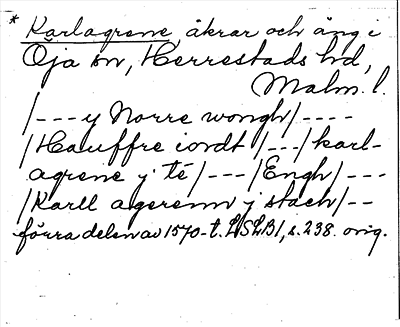 * Karlagrene, åkrar och äng i
Öja sn, Herrestads hd,
Malm. l.
/--- y Norre wongh/----
/Hauffre iordt/---/karl-
agrene y té/---/Engh/---
/Karll agerenn y stach/--
förra delen av 1570-t. LSLB1, s. 238. orig.